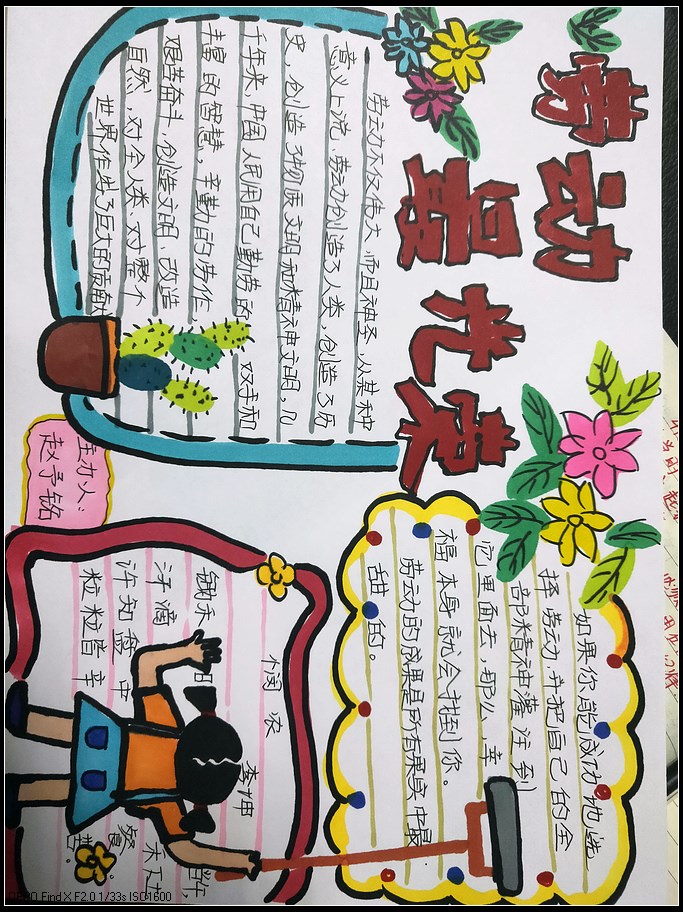 劳动
最光荣
劳动不仅伟大,而且神圣,从某种
意义上说,劳动创造了人类,创造了历
史,创造了物质文明和精神文明,几
千年来,中国人民用自己勤劳的双手和
丰富的智慧,辛勤的劳作
艰苦奋斗,创造文明,改造
自然,对全人类、对整个
世界作出了巨大的贡献
主办人:
赵予铭
如果你能成功地选
择劳动,并把自己的全
部精神灌注到
它里面去,那么,幸
福本身就会找到你。
劳动的成果是所有果实中最
甜的。
悯农
李绅
锄禾日当午,
汗滴禾下土
谁知盘中餐
粒粒皆辛苦。
OPPO Find X F2.0 1/33s ISO1600